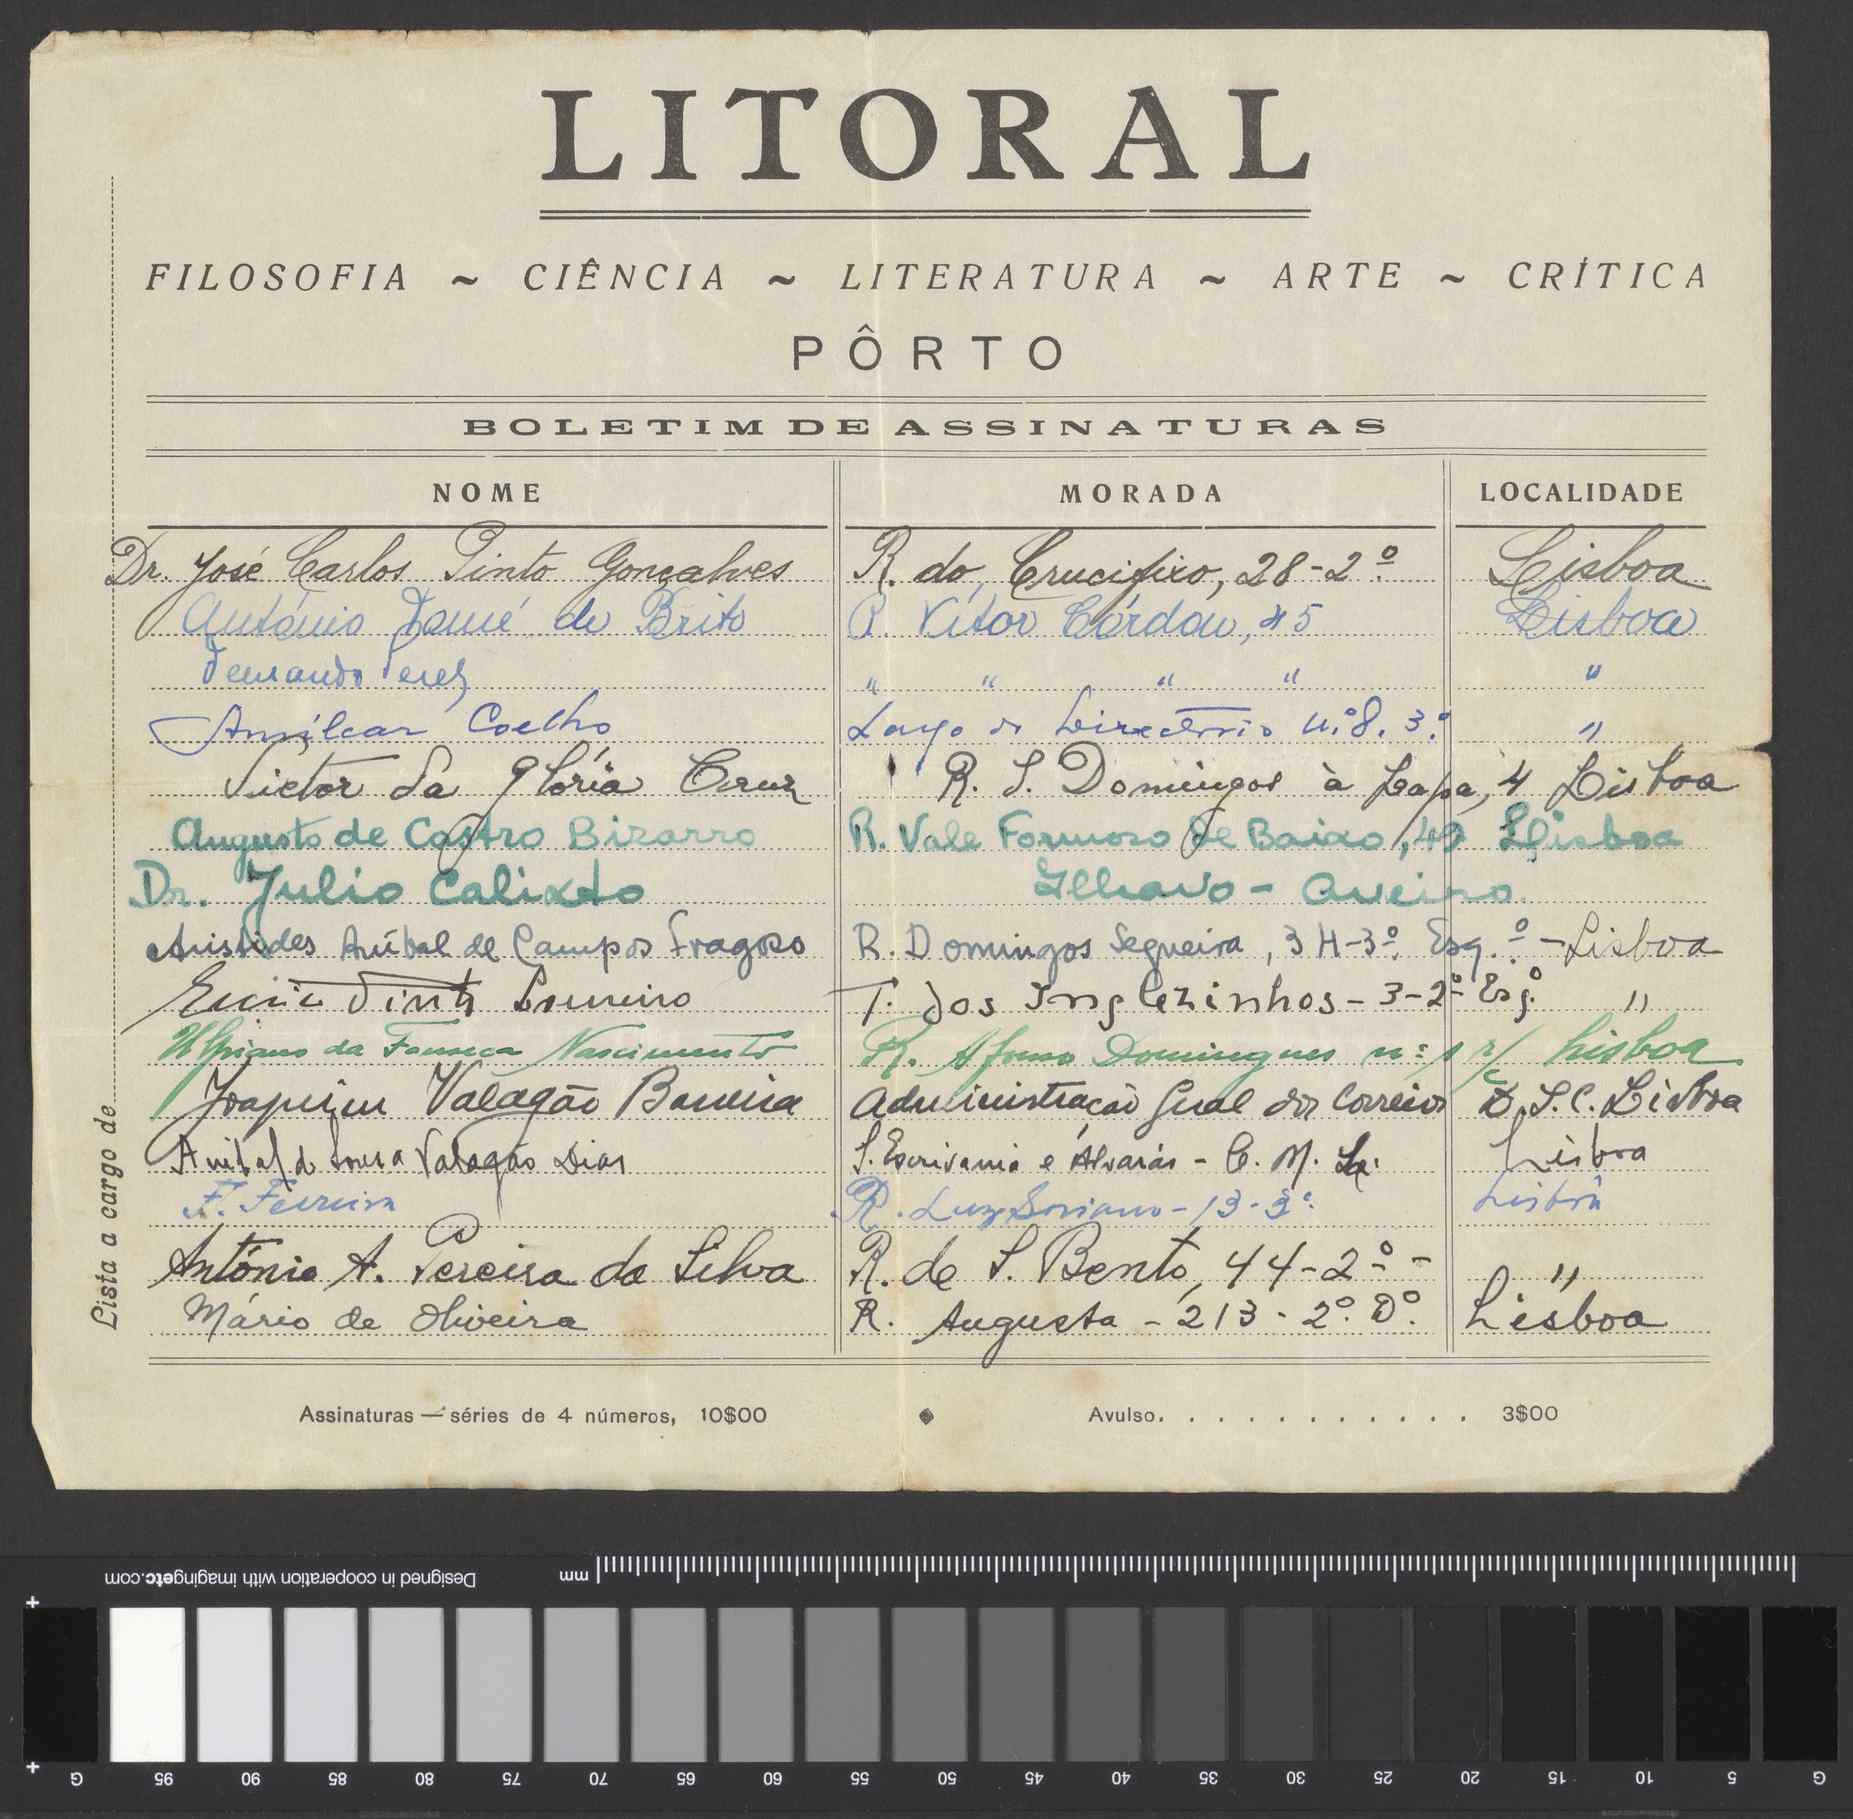 LITORAL
FILOSOFIA ~ CIÊNCIA ~ LITERATURA ~ ARTE ~ CRÍTICA
PÔRTO
BOLETIM DE ASSINATURAS
NOME MORADA LOCALIDADE
Dr. José Carlos Pinto Gonçalves R. do Crucifixo, 28-2º Lisboa
António de Brito R. Vítor Córdon, 45 Lisboa
Fernando Perez " " " " "
Amílcar Coelho Largo do Directório n.º 8. 3.º "
Victor da Glória Cruz R. S. Domingos à Lapa, 4 Lisboa
Augusto de Castro Bizarro R. Vale Formoso de Baixo, 49 Lisboa
Dr. Julio Calixto Ilhavo - Aveiro
Aristides Aníbal de Campos Fragoso R. Domingos Sequeira, 3H-3º. Esq.º - Lisboa
Pinto T. dos Inglezinhos - 3-2º Esq.º "
Ulpiano da Fonseca Nascimento R. Afonso Domingues n.º r/c Lisboa
Joaquim Valagão Barreira Administração Geral dos Correios D.S.C. Lisboa
Anibal de Sousa Valagão Dias S. Escrivania e Alvarás - C. M. L. Lisboa
F. Ferreira R. Luz Soriano - 13-3º. Lisboa
António A. Pereira da Silva R. de S. Bento, 44-2º - "
Mário de Oliveira R. Augusta - 213 - 2º. Dº. Lisboa
Lista a cargo de
Assinaturas — séries de 4 números, 10$00 Avulso. . . . . . . . . . . . 3$00
Designed in cooperation with imagingetc.com mm
G 95 90 85 80 75 70 65 60 55 50 45 40 35 30 25 20 15 10 5 G